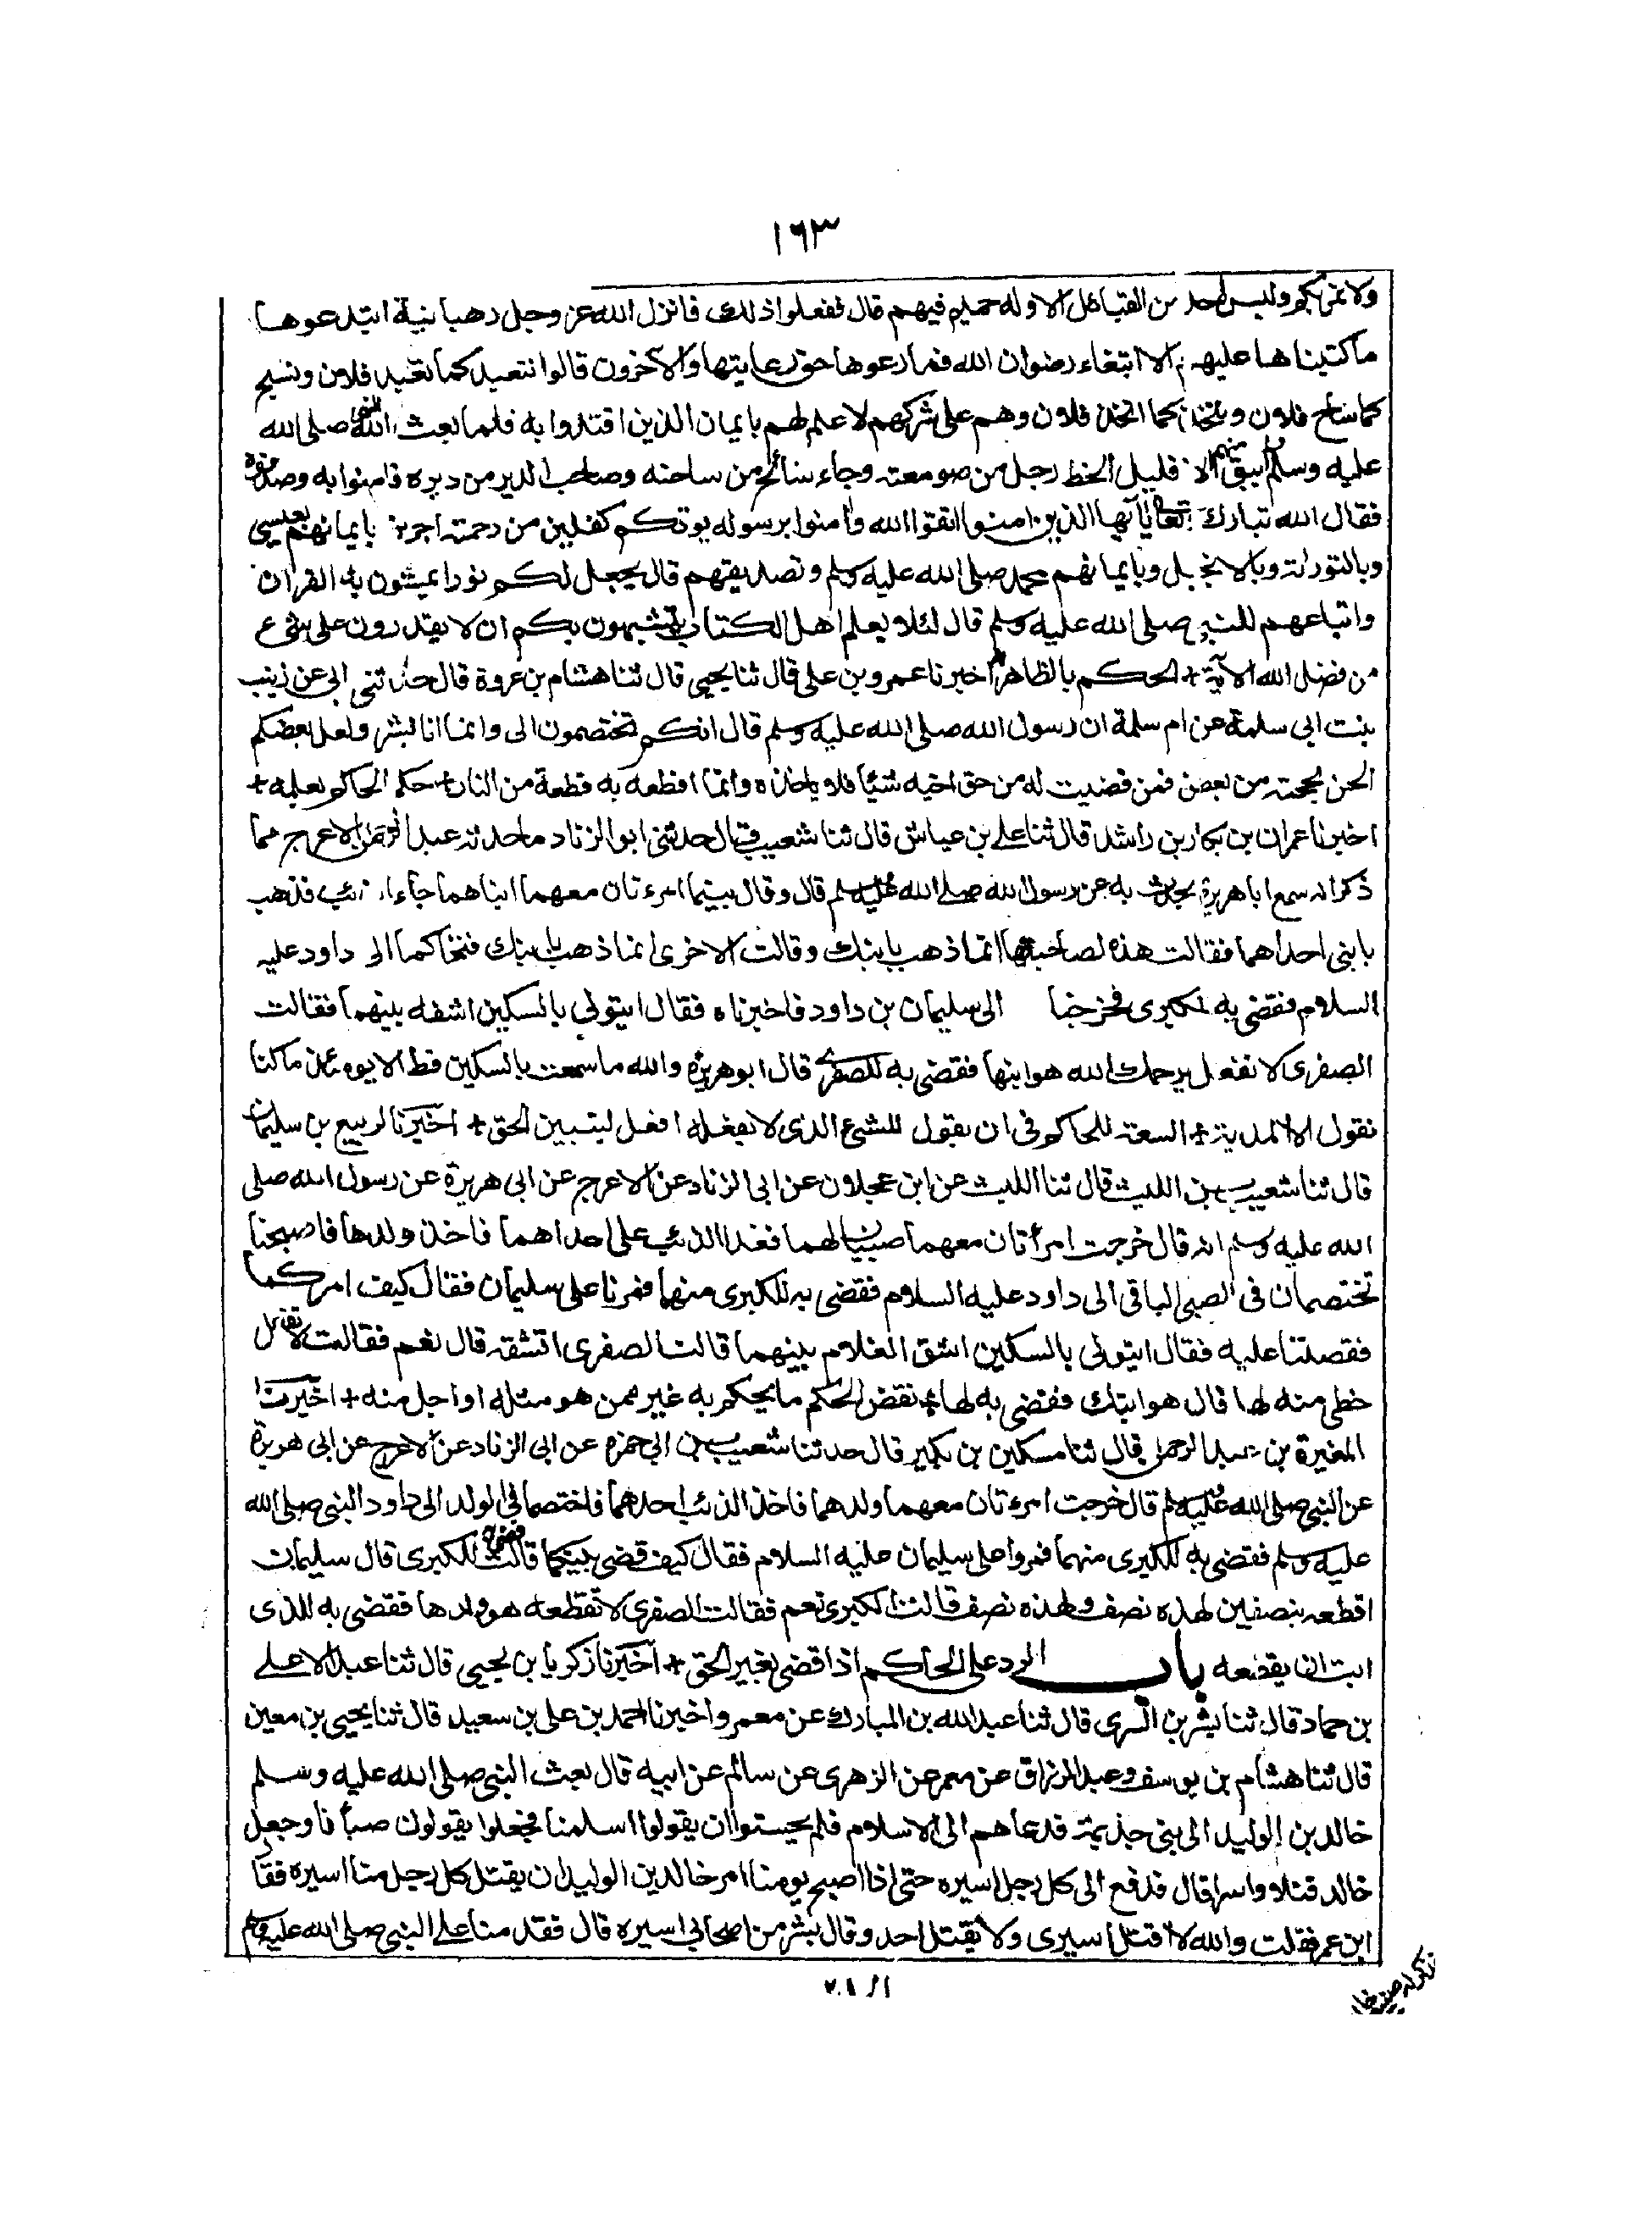 ١٦٣
ولا نمر بكم وليس احد من القبائل الا وله حميم فيهم قال ففعلوا ذلك فانزل الله عز وجل رهبانية ابتدعوها
ما كتبناها عليهم الا ابتغاء رضوان الله فما رعوها حق رعايتها والآخرون قالوا نتعبد كما تعبد فلان ونسيح
كما ساح فلان ونتخذ كما اتخذ فلان وهم على شركهم لا علم لهم بايمان الذين اقتدوا به فلما بعث الله النبي صلى الله
عليه وسلم لم يبق منهم الا قليل انحط رجل من صومعته وجاء سائح من ساحته وصاحب الدير من ديره فامنوا به وصدقوه
فقال الله تبارك وتعالى يا آيها الذين امنوا اتقوا الله وامنوا برسوله يوتكم كفلين من رحمته اجرين بايمانهم بعيسى
وبالتوراة وبالانجيل وبايمانهم بمحمد صلى الله عليه وسلم وتصديقهم قال يجعل لكم نورا تمشون به القران
واتباعهم للنبي صلى الله عليه وسلم قال لئلا يعلم اهل الكتاب يتشبهون بكم ان لا يقدرون على شئ
من فضل الله الآية + الحكم بالظاهر + اخبرنا عمرو بن على قال ثنا يحيى قال ثنا هشام بن عروة قال حدثنى ابى عن زينب
بنت ابى سلمة عن ام سلمة ان رسول الله صلى الله عليه وسلم قال انكم تختصمون الى وانما انا بشر ولعل بعضكم
الحن بحجته من بعض فمن قضيت له من حق اخيه شيئا فلا ياخذه وانما اقطعه به قطعة من النار + حكم الحاكم بعلمه +
اخبرنا عمران بن بكار بن راشد قال ثنا على بن عياش قال ثنا شعيب قال حدثنى ابو الزناد ما حدثه عبد الرحمن الاعرج مما
ذكر انه سمع ابا هريرة يحدث به عن رسول الله صلى الله عليه وسلم قال وقال بينما امرءتان معهما ابناهما جاء الذئب فذهب
بابن احداهما فقالت هذه لصاحبتها انما ذهب بابنك وقالت الاخرى انما ذهب بابنك فتحاكما الى داود عليه
السلام فقضى به للكبرى فخرجنا الى سليمان بن داود فاخبرناه فقال ايتونى بالسكين اشقه بينهما فقالت
الصغرى لا تفعل يرحمك الله هو ابنها فقضى به للصغرى قال ابو هريرة والله ما سمعت بالسكين قط الا يومئذ ما كنا
نقول الا المدية + السعة للحاكم فى ان يقول للشئ الذى لا يفعله افعل ليتبين الحق + اخبرنا الربيع بن سليمان
قال ثنا شعيب بن الليث قال ثنا الليث عن ابن عجلان عن ابى الزناد عن الاعرج عن ابى هريرة عن رسول الله صلى
الله عليه وسلم انه قال خرجت امرأتان معهما صبيان لهما فغدا الذئب على احداهما فاخذ ولدها فاصبحتا
تختصمان فى الصبى الباقى الى داود عليه السلام فقضى به للكبرى منهما فمرتا على سليمان فقال كيف امركما
فقصتا عليه فقال ايتونى بالسكين اشق الغلام بينهما قالت الصغرى اتشقه قال نعم فقالت لا تفعل
حظى منه لها قال هو ابنك فقضى به لها + نقض الحكم ما يحكم به غيره ممن هو مثله او اجل منه + اخبرنا
المغيرة بن عبد الرحمن قال ثنا مسكين بن بكير قال حدثنا شعيب بن ابى حمزة عن ابى الزناد عن الاعرج عن ابى هريرة
عن النبى صلى الله عليه وسلم قال خرجت امرءتان معهما ولدهما فاخذ الذئب احدهما فاختصما فى الولد الى داود النبى صلى الله
عليه وسلم فقضى به للكبرى منهما فمروا على سليمان عليه السلام فقال كيف قضى بينكما قالت قضى به للكبرى قال سليمان
اقطعه بنصفين لهذه نصف ولهذه نصف قالت الكبرى نعم فقالت الصغرى لا تقطعه هو ولدها فقضى به للذى
ابت ان يقطعه باب الرد على الحاكم اذا قضى بغير الحق + اخبرنا زكريا بن يحيى قال ثنا عبد الاعلى
بن حماد قال ثنا بشر بن السرى قال ثنا عبد الله بن المبارك عن معمر واخبرنا احمد بن على بن سعيد قال ثنا يحيى بن معين
قال ثنا هشام بن يوسف وعبد الرزاق عن معمر عن الزهرى عن سالم عن ابيه قال بعث النبى صلى الله عليه وسلم
خالد بن الوليد الى بنى جذيمة فدعاهم الى الاسلام فلم يحسنوا ان يقولوا اسلمنا فجعلوا يقولون صبأنا وجعل
خالد قتلا واسرا قال فدفع الى كل رجل اسيره حتى اذا اصبح يومنا امر خالد بن الوليد ان يقتل كل رجل منا اسيره فقا
ابن عمر فقلت والله لا اقتل اسيرى ولا يقتل احد وقال بشر من اصحابى اسيره قال فقد منا على النبى صلى الله عليه وسلم